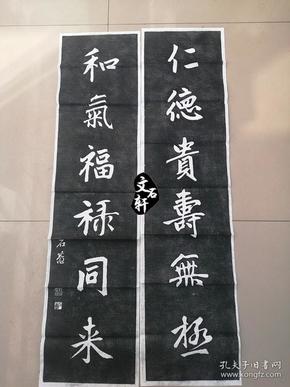 仁德貴壽無極
和氣福禄同来
石菴
文石軒
孔夫子旧书网